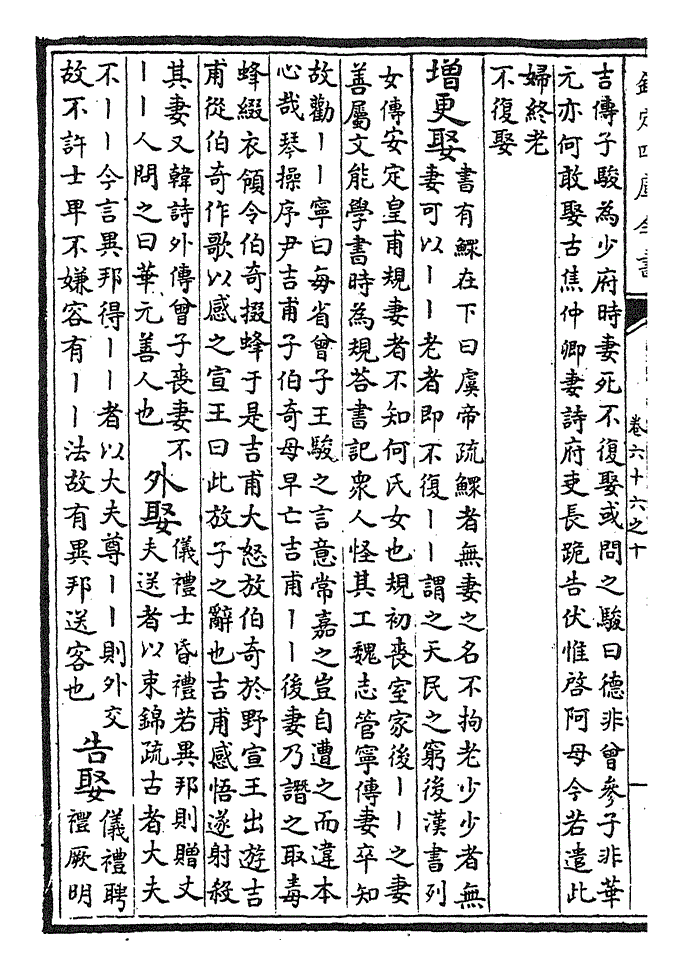 欽定四庫全書
卷六十六之十
吉傳子駿為少府時妻死不復娶或問之駿曰德非曾參子非華
元亦何敢娶古焦仲卿妻詩府吏長跪告伏惟啓阿母今若遣此
婦終老
不復娶
增更娶
書有鰥在下曰虞帝疏鰥者無妻之名不拘老少少者無
妻可以丨丨老者即不復丨丨謂之天民之窮後漢書列
女傳安定皇甫規妻者不知何氏女也規初喪室家後丨丨之妻
善屬文能學書時為規荅書記衆人怪其工魏志管寧傳妻卒知
故勸丨丨寧曰每省曾子王駿之言意常嘉之豈自遭之而違本
心哉琴操序尹吉甫子伯奇母早亡吉甫丨丨後妻乃譖之取毒
蜂綴衣領令伯奇掇蜂于是吉甫大怒放伯奇於野宣王出遊吉
甫從伯奇作歌以感之宣王曰此放子之辭也吉甫感悟遂射殺
其妻又韓詩外傳曾子喪妻不
丨丨人問之曰華元善人也
外娶
儀禮士昏禮若異邦則贈丈
夫送者以束錦疏古者大夫
不丨丨今言異邦得丨丨者以大夫尊丨丨則外交
故不許士卑不嫌容有丨丨法故有異邦送客也
告娶
儀禮聘
禮厥明